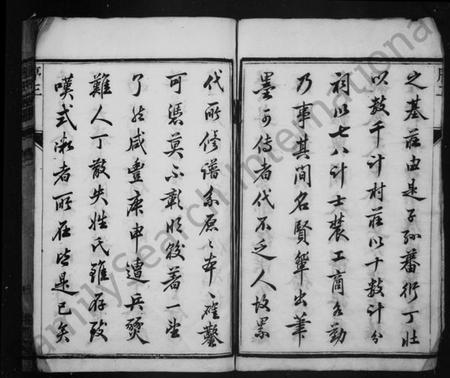 之基莊由是子孫蕃衍丁壯
以數千計村莊以十數計分
祠以七八計士農工商各勤
乃事其間名賢輩出筆
墨可傳者代不乏人故累
代所修譜系原原本本確鑿
可憑莫不彰明較著一坐
了然咸豐庚申遭兵燹
難人丁散失姓氏雖存殁
嘆式微者所在皆是已矣
序二
序三
FamilySearch International